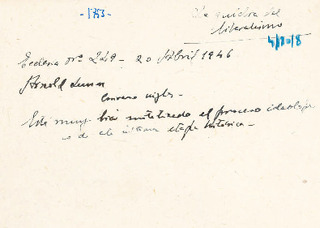 -1753-
La quiebra del
liberalismo
4/20/8
Ecclesia nº 249 - 20 Abril 1946
Arnold Lunn
converso inglés -
Esta muy bien sintetizado el proceso ideologico
de la última etapa histórica -